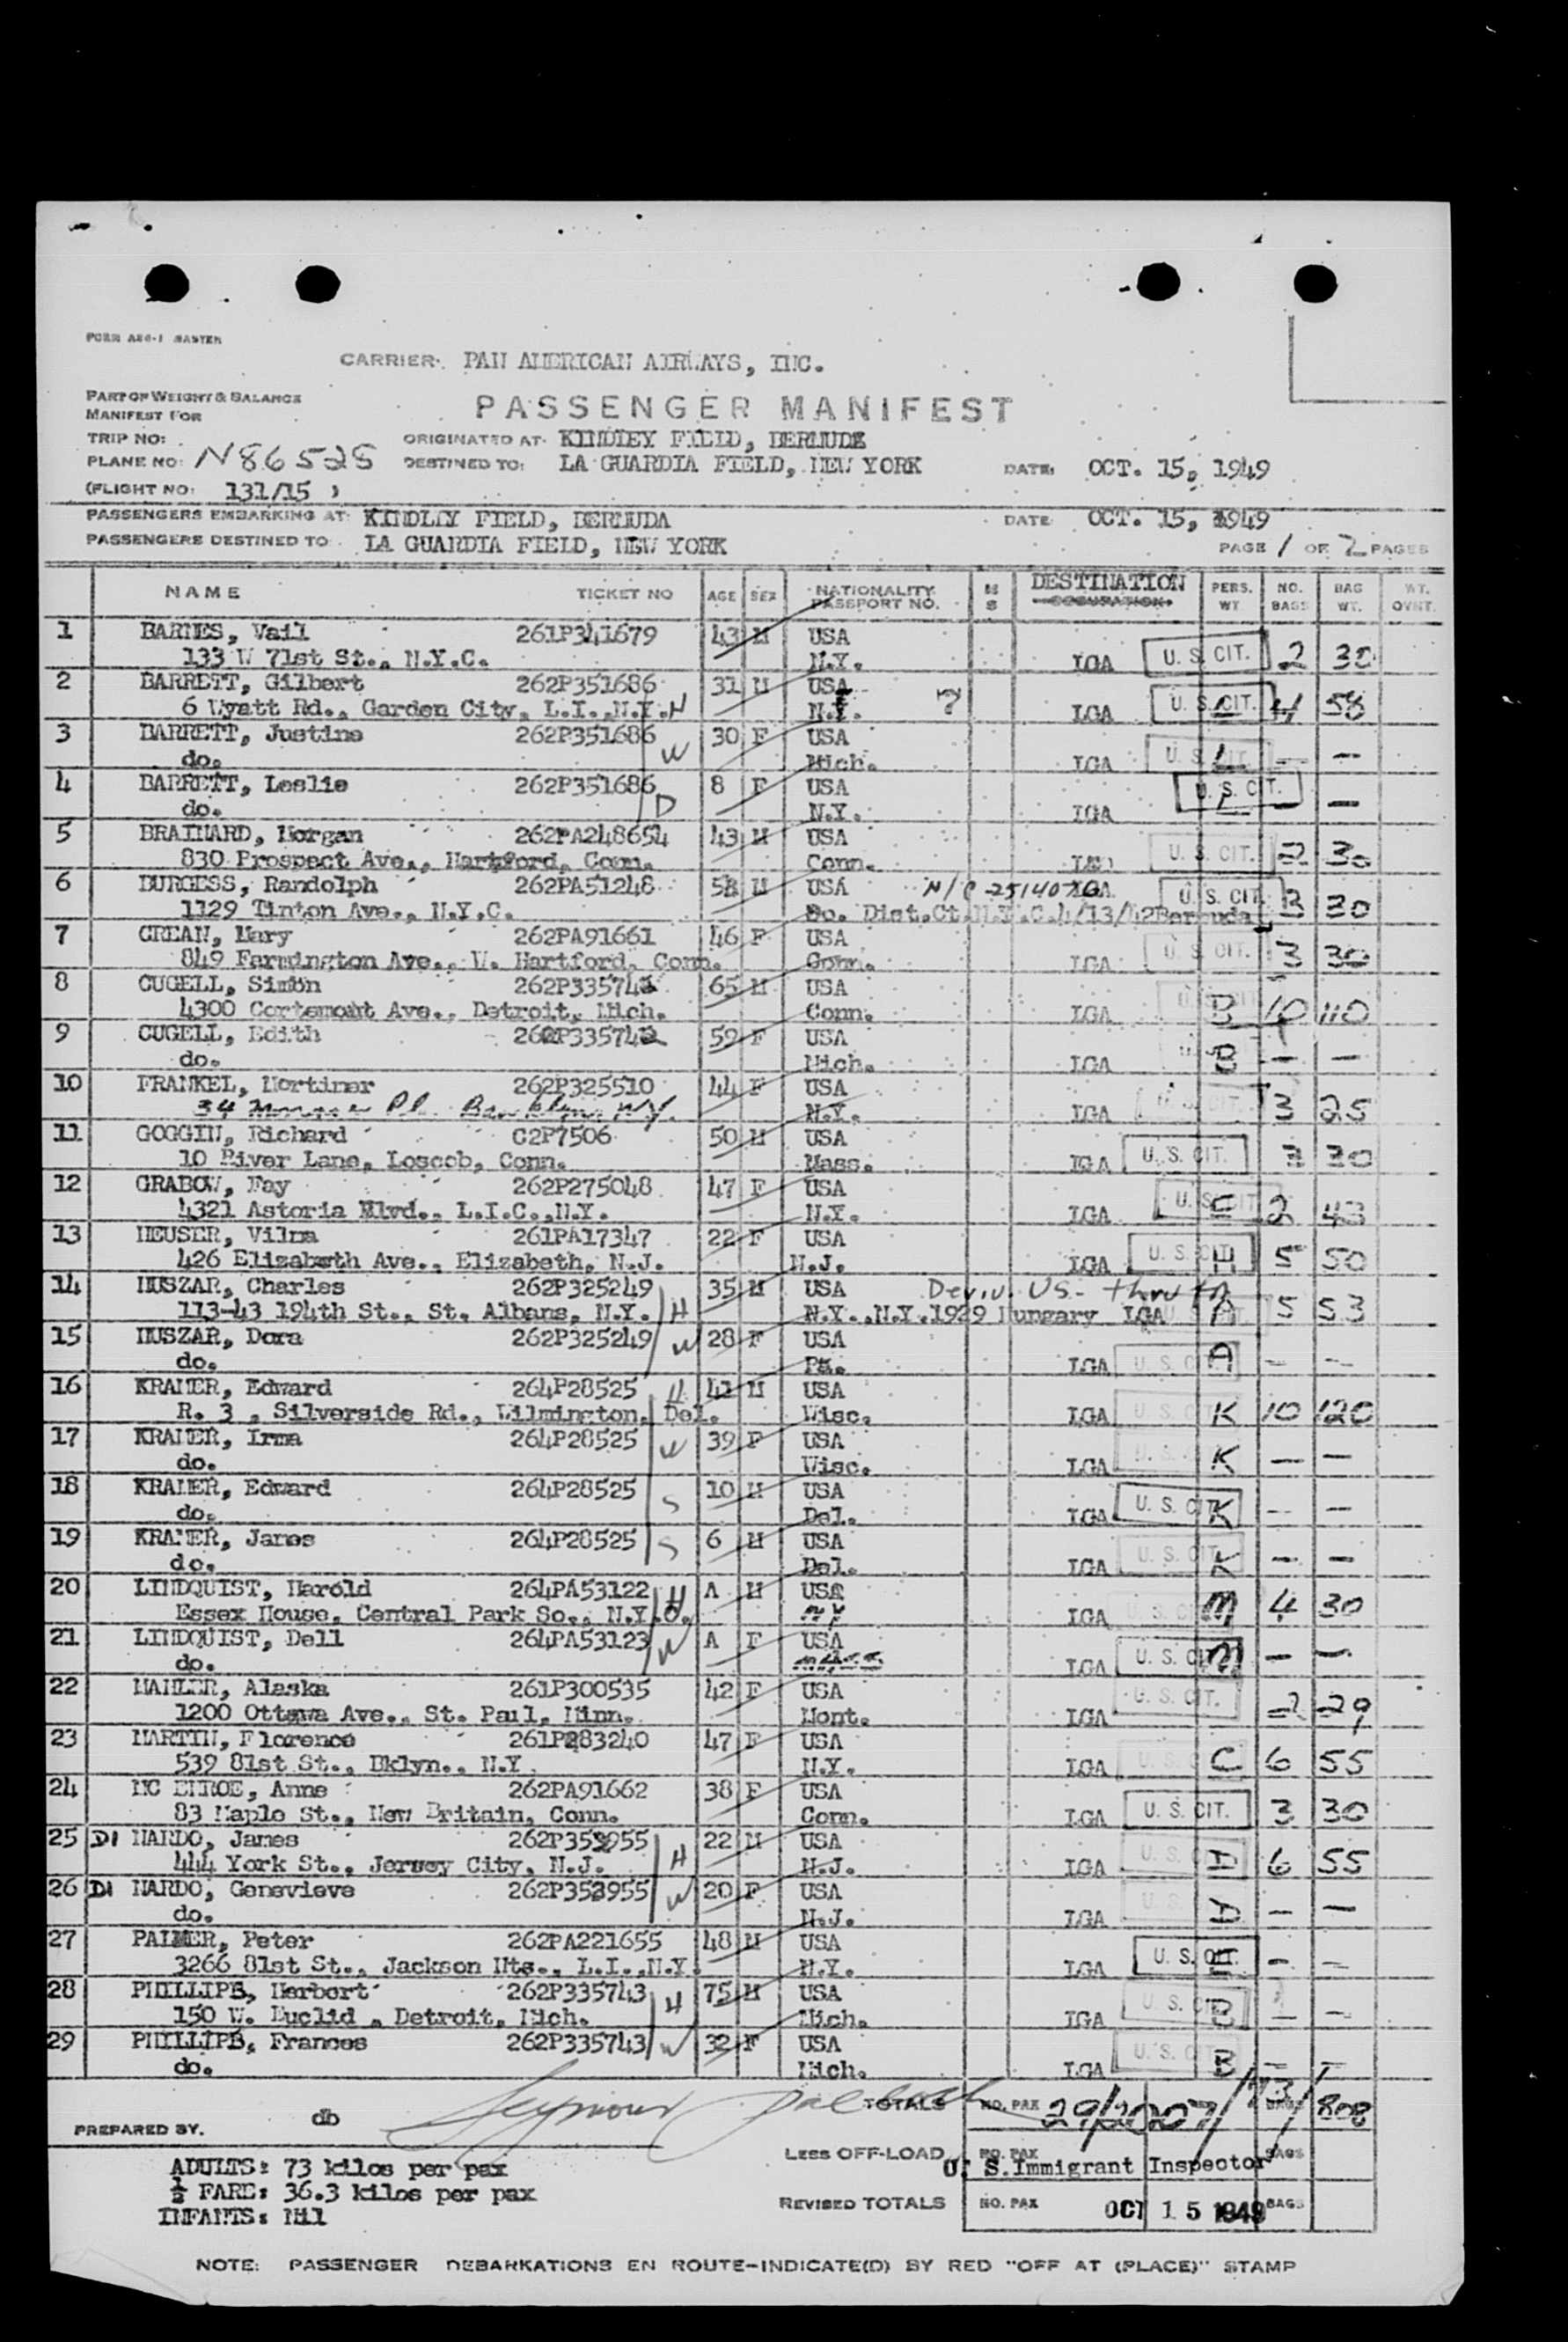 FORM ABG-1 MASTER
CARRIER: PAN AMERICAN AIRWAYS, INC.
PART OF WEIGHT & BALANCE
MANIFEST FOR
PASSENGER MANIFEST
TRIP NO:
ORIGINATED AT: KINDLEY FIELD, BERMUDA
PLANE NO: N86528 DESTINED TO: LA GUARDIA FIELD, NEW YORK DATE: OCT. 15, 1949
(FLIGHT NO: 131/15 )
PASSENGERS EMBARKING AT: KINDLEY FIELD, BERMUDA DATE OCT. 15, 1949
PASSENGERS DESTINED TO: LA GUARDIA FIELD, NEW YORK PAGE 1 OF 2 PAGES
NAME TICKET NO AGE SEX NATIONALITY PASSPORT NO. M S DESTINATION OCCUPATION PERS. WT. NO. BAGS BAG WT. WT. OVNT.
1 BARNES, Vail 261P341679 43 M USA
133 W 71st St., N.Y.C. N.Y. LGA U. S. CIT. 2 30
2 BARRETT, Gilbert 262P351686 31 M USA
6 Wyatt Rd., Garden City, L.I.,N.Y. H N.Y. ? LGA U. S. CIT. L 4 58
3 BARRETT, Justine 262P351686 30 F USA
do. W Mich. LGA U. S. CIT. L — —
4 BARRETT, Leslie 262P351686 8 F USA
do. D N.Y. LGA U. S. CIT. L — —
5 BRAINARD, Morgan 262PA248654 43 M USA
830 Prospect Ave., Hartford, Conn. Conn. U. S. CIT. 2 30
6 BURGESS, Randolph 262PA51248 58 M USA N/C LGA U. S. CIT. 3 30
1129 Tinton Ave., N.Y.C. So. Dist.Ct.N.Y.C.4/13/42Bermuda
7 CREAN, Mary 262PA91661 46 F USA
849 Farmington Ave., W. Hartford, Conn. Conn. LGA U. S. CIT. 3 30
8 CUGELL, Simon 262P335742 65 M USA
4300 Cortemont Ave., Detroit, Mich. Conn. LGA B 10 110
9 CUGELL, Edith 262P335742 59 F USA
do. Mich. LGA B — —
10 FRANKEL, Mortimer 262P325510 44 F USA
34 Pl. Brooklyn N.Y. N.Y. LGA U. S. CIT. 3 25
11 GOGGIN, Richard C2P7506 50 M USA
10 River Lane, Loscob, Conn. Mass. LGA U. S. CIT. 3 30
12 GRABOW, Fay 262P275048 47 F USA
4321 Astoria Blvd., L.I.C.,N.Y. N.Y. LGA U. S. CIT. C 2 43
13 HEUSER, Vilma 261PA17347 22 F USA
426 Elizabeth Ave., Elizabeth, N.J. N.J. LGA U. S. CIT. H 5 50
14 HUSZAR, Charles 262P325249 35 M USA Deriv. US- thru fa
113-43 194th St., St. Albans, N.Y. H N.Y.,N.Y.1929 Hungary LGA A 5 53
15 HUSZAR, Dora 262P325249 W 28 F USA
do. Pa. LGA U. S. CIT. A — —
16 KRAMER, Edward 264P28525 H 41 M USA
R. 3 , Silverside Rd., Wilmington, Del. Wisc. LGA U. S. CIT. K 10 120
17 KRAMER, Irma 264P28525 W 39 F USA
do. Wisc. LGA K — —
18 KRAMER, Edward 264P28525 S 10 M USA
do. Del. LGA U. S. CIT. K — —
19 KRAMER, James 264P28525 S 6 M USA
do. Del. LGA U. S. CIT. K — —
20 LINDQUIST, Harold 264PA53122 H A M USA
Essex House, Central Park So., N.Y.C. NY LGA M 4 30
21 LINDQUIST, Dell 264PA53123 W A F USA
do. Mass LGA U. S. CIT. M — —
22 MAHLER, Alaska 261P300535 42 F USA
1200 Ottawa Ave., St. Paul, Minn. Mont. LGA U. S. CIT. 2 29
23 MARTIN, Florence 261P283240 47 F USA
539 81st St., Bklyn., N.Y. N.Y. LGA U. S. C 6 55
24 MC ENROE, Anne 262PA91662 38 F USA
83 Maple St., New Britain, Conn. Conn. LGA U. S. CIT. 3 30
25 DI NARDO, James 262P353955 22 M USA
444 York St., Jersey City, N.J. H N.J. LGA U. S. D 6 55
26 DI NARDO, Genevieve 262P353955 W 20 F USA
do. N.J. LGA U. S. D — —
27 PALMER, Peter 262PA221655 48 M USA
3266 81st St., Jackson Hts., L.I.,N.Y. N.Y. LGA U. S. CIT. — —
28 PHILLIPS, Herbert 262P335743 H 75 M USA
150 W. Euclid , Detroit, Mich. Mich. LGA U. S. CIT. B — —
29 PHILLIPS, Frances 262P335743 W 32 F USA
do. Mich. LGA U. S. CIT. B — —
PREPARED BY. db Seymour TOTALS NO. PAX 29/2007/73/ BAGS 808
ADULTS: 73 kilos per pax
½ FARE: 36.3 kilos per pax
INFANTS: Nil
LESS OFF-LOAD NO. PAX BAGS
U. S. Immigrant Inspector
REVISED TOTALS NO. PAX OCT 15 1949 BAGS
NOTE: PASSENGER DEBARKATIONS EN ROUTE-INDICATE(D) BY RED "OFF AT (PLACE)" STAMP